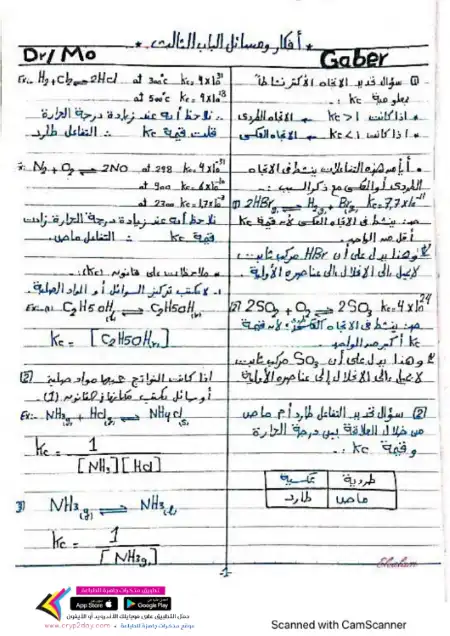 * أفكار ومسائل الباب الثالث *
Dr/Mo
Gaber
(1) سؤال تحديد الاتجاه الأكثر نشاطاً
بمعلومية Kc :-
* اذا كانت Kc > 1 ← الاتجاه الطردى
* اذا كانت Kc < 1 ← الاتجاه العكسى
* أى من هذه التفاعلات ينشط فى الاتجاه
الطردى أو العكسى مع ذكر السبب :-
(1) 2HBr(g) ⇌ H2(g) + Br2(g) Kc = 7,7×10
ينشط فى الاتجاه العكسى لأن قيمة Kc
أقل من الواحد
وهذا يدل على أن HBr مركب ثابت
لا يميل الى الانحلال الى عناصره الأولية
(2) 2SO2 + O2 ⇌ 2SO3 Kc = 4×10^24
ينشط فى الاتجاه لأن قيمة
Kc أكبر من الواحد
وهذا يدل على أن SO3 مركب ثابت
لا يميل الى الانحلال الى عناصره الأولية
(2) سؤال تحديد التفاعل طارد أم ماص
من خلال العلاقة بين درجة الحرارة
و قيمة Kc :-
طردية عكسية
ماص طارد
Ex:- H2 + Cl2 ⇌ 2HCl at 300°c Kc = 4×10^31
at 500°c Kc = 4×10^18
∴ نلاحظ أنه عند زيادة درجة الحرارة
قلت قيمة Kc ∴ التفاعل طارد
N2 + O2 ⇌ 2NO at 298 Kc = 4×10^-31
at 900
at 2300 Kc = 1,7×10^-3
نلاحظ أنه عند زيادة درجة الحرارة زادت
قيمة Kc ∴ التفاعل ماص
* ملاحظات على قانون (Kc) :-
1- لا يكتب تركيز السوائل أو المواد الصلبة
C2H5OH(l) ⇌ C2H5OH(v)
Kc = [C2H5OH(v)]
(2) اذا كانت النواتج جميعها مواد صلبة
أو سوائل يكتب مكانها فى القانون (1)
Ex:- NH3(g) + HCl(g) ⇌ NH4Cl(s)
Kc = 1 / [NH3][HCl]
3) NH3(g) ⇌ NH3(l)
Kc = 1 / [NH3(g)]
-1-
تطبيق مذكرات جاهزة للطباعة
App Store
Google Play
حمل التطبيق على موبايلك الأندرويد أو الآيفون
موقع مذكرات جاهزة للطباعة • www.cryp2day.com
Scanned with CamScanner